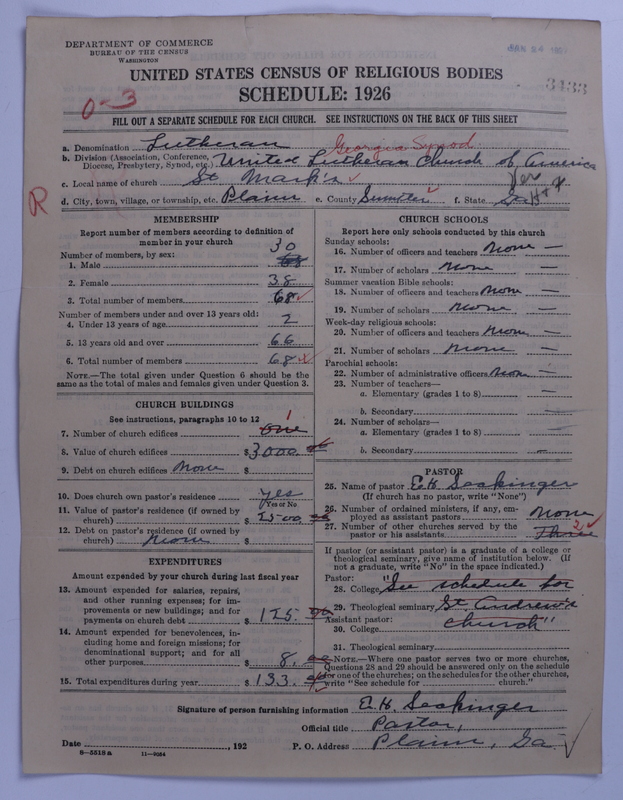 DEPARTMENT OF COMMERCE
BUREAU OF THE CENSUS
WASHINGTON
UNITED STATES CENSUS OF RELIGIOUS BODIES
SCHEDULE: 1926
3433
0-3
FILL OUT A SEPARATE SCHEDULE FOR EACH CHURCH. SEE INSTRUCTIONS ON THE BACK OF THIS SHEET
a. Denomination Lutheran Georgia Synod
b. Division (Association, Conference, Diocese, Presbytery, Synod, etc.) United Lutheran Church of America
c. Local name of church St Mark's
R
d. City, town, village, or township, etc. Plains e. County Sumter f. State Ga
MEMBERSHIP
Report number of members according to definition of
member in your church
Number of members, by sex: 30
1. Male 68
2. Female 38
3. Total number of members 68
Number of members under and over 13 years old:
4. Under 13 years of age 2
5. 13 years old and over 66
6. Total number of members 68
NOTE.—The total given under Question 6 should be the
same as the total of males and females given under Question 3.
CHURCH BUILDINGS
See instructions, paragraphs 10 to 12 1
7. Number of church edifices One
8. Value of church edifices $3000.00
9. Debt on church edifices None $
10. Does church own pastor's residence yes
Yes or No
11. Value of pastor's residence (if owned by
church) $ 2500.00
12. Debt on pastor's residence (if owned by
church) None $
EXPENDITURES
Amount expended by your church during last fiscal year
13. Amount expended for salaries, repairs,
and other running expenses; for im-
provements or new buildings; and for
payments on church debt $ 125.00
14. Amount expended for benevolences, in-
cluding home and foreign missions; for
denominational support; and for all
other purposes $ 8.00
15. Total expenditures during year $ 133.00
CHURCH SCHOOLS
Report here only schools conducted by this church
Sunday schools:
16. Number of officers and teachers None —
17. Number of scholars None —
Summer vacation Bible schools:
18. Number of officers and teachers None —
19. Number of scholars None —
Week-day religious schools:
20. Number of officers and teachers None —
21. Number of scholars None —
Parochial schools:
22. Number of administrative officers None —
23. Number of teachers—
a. Elementary (grades 1 to 8) —
b. Secondary —
24. Number of scholars—
a. Elementary (grades 1 to 8) —
b. Secondary —
PASTOR
25. Name of pastor E. H. Seckinger
(If church has no pastor, write "None")
26. Number of ordained ministers, if any, em-
ployed as assistant pastors None
27. Number of other churches served by the
pastor or his assistants Three 2
If pastor (or assistant pastor) is a graduate of a college or
theological seminary, give name of institution below. (If
not a graduate, write "No" in the space indicated.)
Pastor:
28. College "See schedule for
29. Theological seminary St. Andrew's
Assistant pastor:
30. College church"
31. Theological seminary
NOTE.—Where one pastor serves two or more churches,
Questions 28 and 29 should be answered only on the schedule
for one of the churches; on the schedules for the other churches,
write "See schedule for church."
Signature of person furnishing information E. H. Seckinger
Official title Pastor,
Date , 192 P. O. Address Plains, Ga.
8—5518 a 11—9084